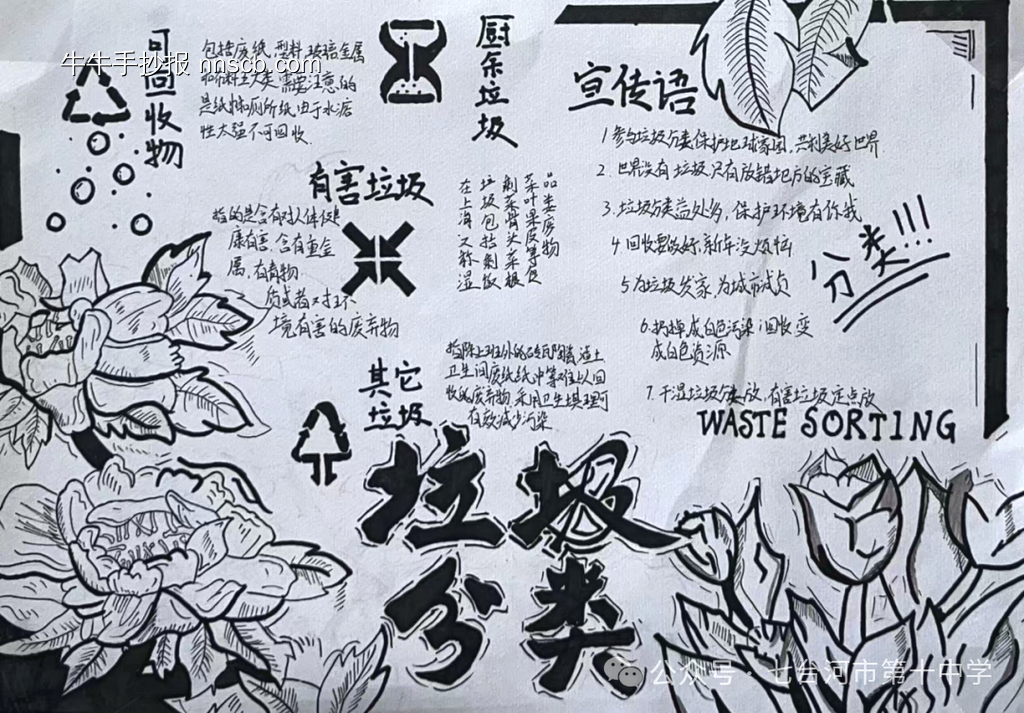 可回收物
包括废纸,塑料,玻璃,金属
和布料五大类,需要注意的
是纸巾和厕所纸由于水溶
性太强不可回收
牛牛手抄报 nnscb.com
厨余垃圾
在上海又称湿
垃圾包括剩饭
剩菜骨头菜根
菜叶果皮等食
品类废物
有害垃圾
指的是含有对人体健
康有害,含有重金
属,有毒物
质或者对环
境有害的废弃物
其它
垃圾
指除上述外的砖瓦陶瓷渣土
卫生间废纸纸巾等难以回
收的废弃物,采用卫生填埋可
有效减少污染
宣传语
1.参与垃圾分类保护地球家园,共创美好世界
2.世界没有垃圾,只有放错地方的宝藏
3.垃圾分类益处多,保护环境有你我
4.回收要做好,新年没烦恼
5.为垃圾分家,为城市减负
6.扔掉成白色污染,回收变
成白色资源
7.干湿垃圾分类放,有害垃圾定点放
分类!!!
WASTE SORTING
垃圾
分类
公众号·七台河市第十中学